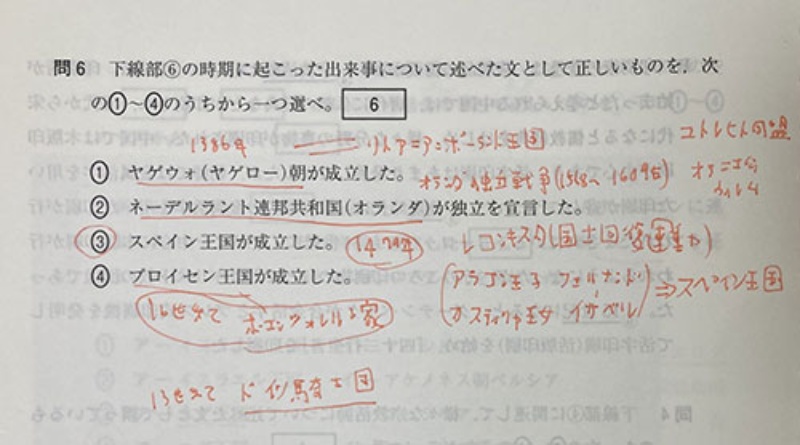 問6 下線部⑥の時期に起こった出来事について述べた文として正しいものを，次
の①～④のうちから一つ選べ。 6
1386年 リトアニア=ポーランド王国
ユトレヒト同盟
① ヤゲウォ(ヤゲロー)朝が成立した。
オランダ独立戦争(1568〜1609年)
② ネーデルラント連邦共和国(オランダ)が独立を宣言した。
③ スペイン王国が成立した。
レコンキスタ(国土回復運動)
④ プロイセン王国が成立した。
(アラゴン王子 フェルナンド
カスティリャ王女 イサベル)
⇒スペイン王国
ホーエンツォレルン家
ドイツ騎士団